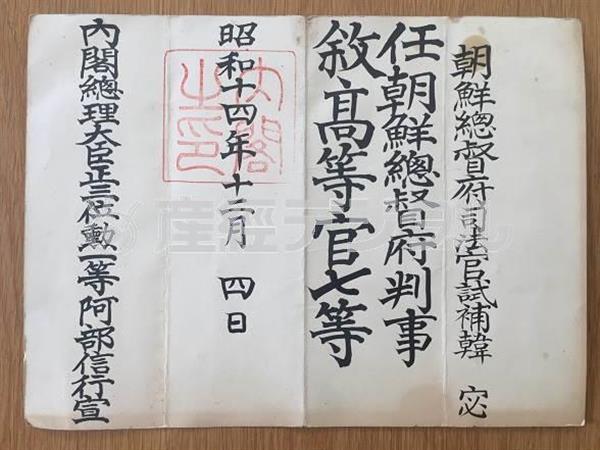 朝鮮總督府司法官試補韓 宓
任朝鮮總督府判事
敘高等官七等
昭和十四年十二月 四日
內閣總理大臣正三位勳一等阿部信行宣
內閣之印
産經デジタル